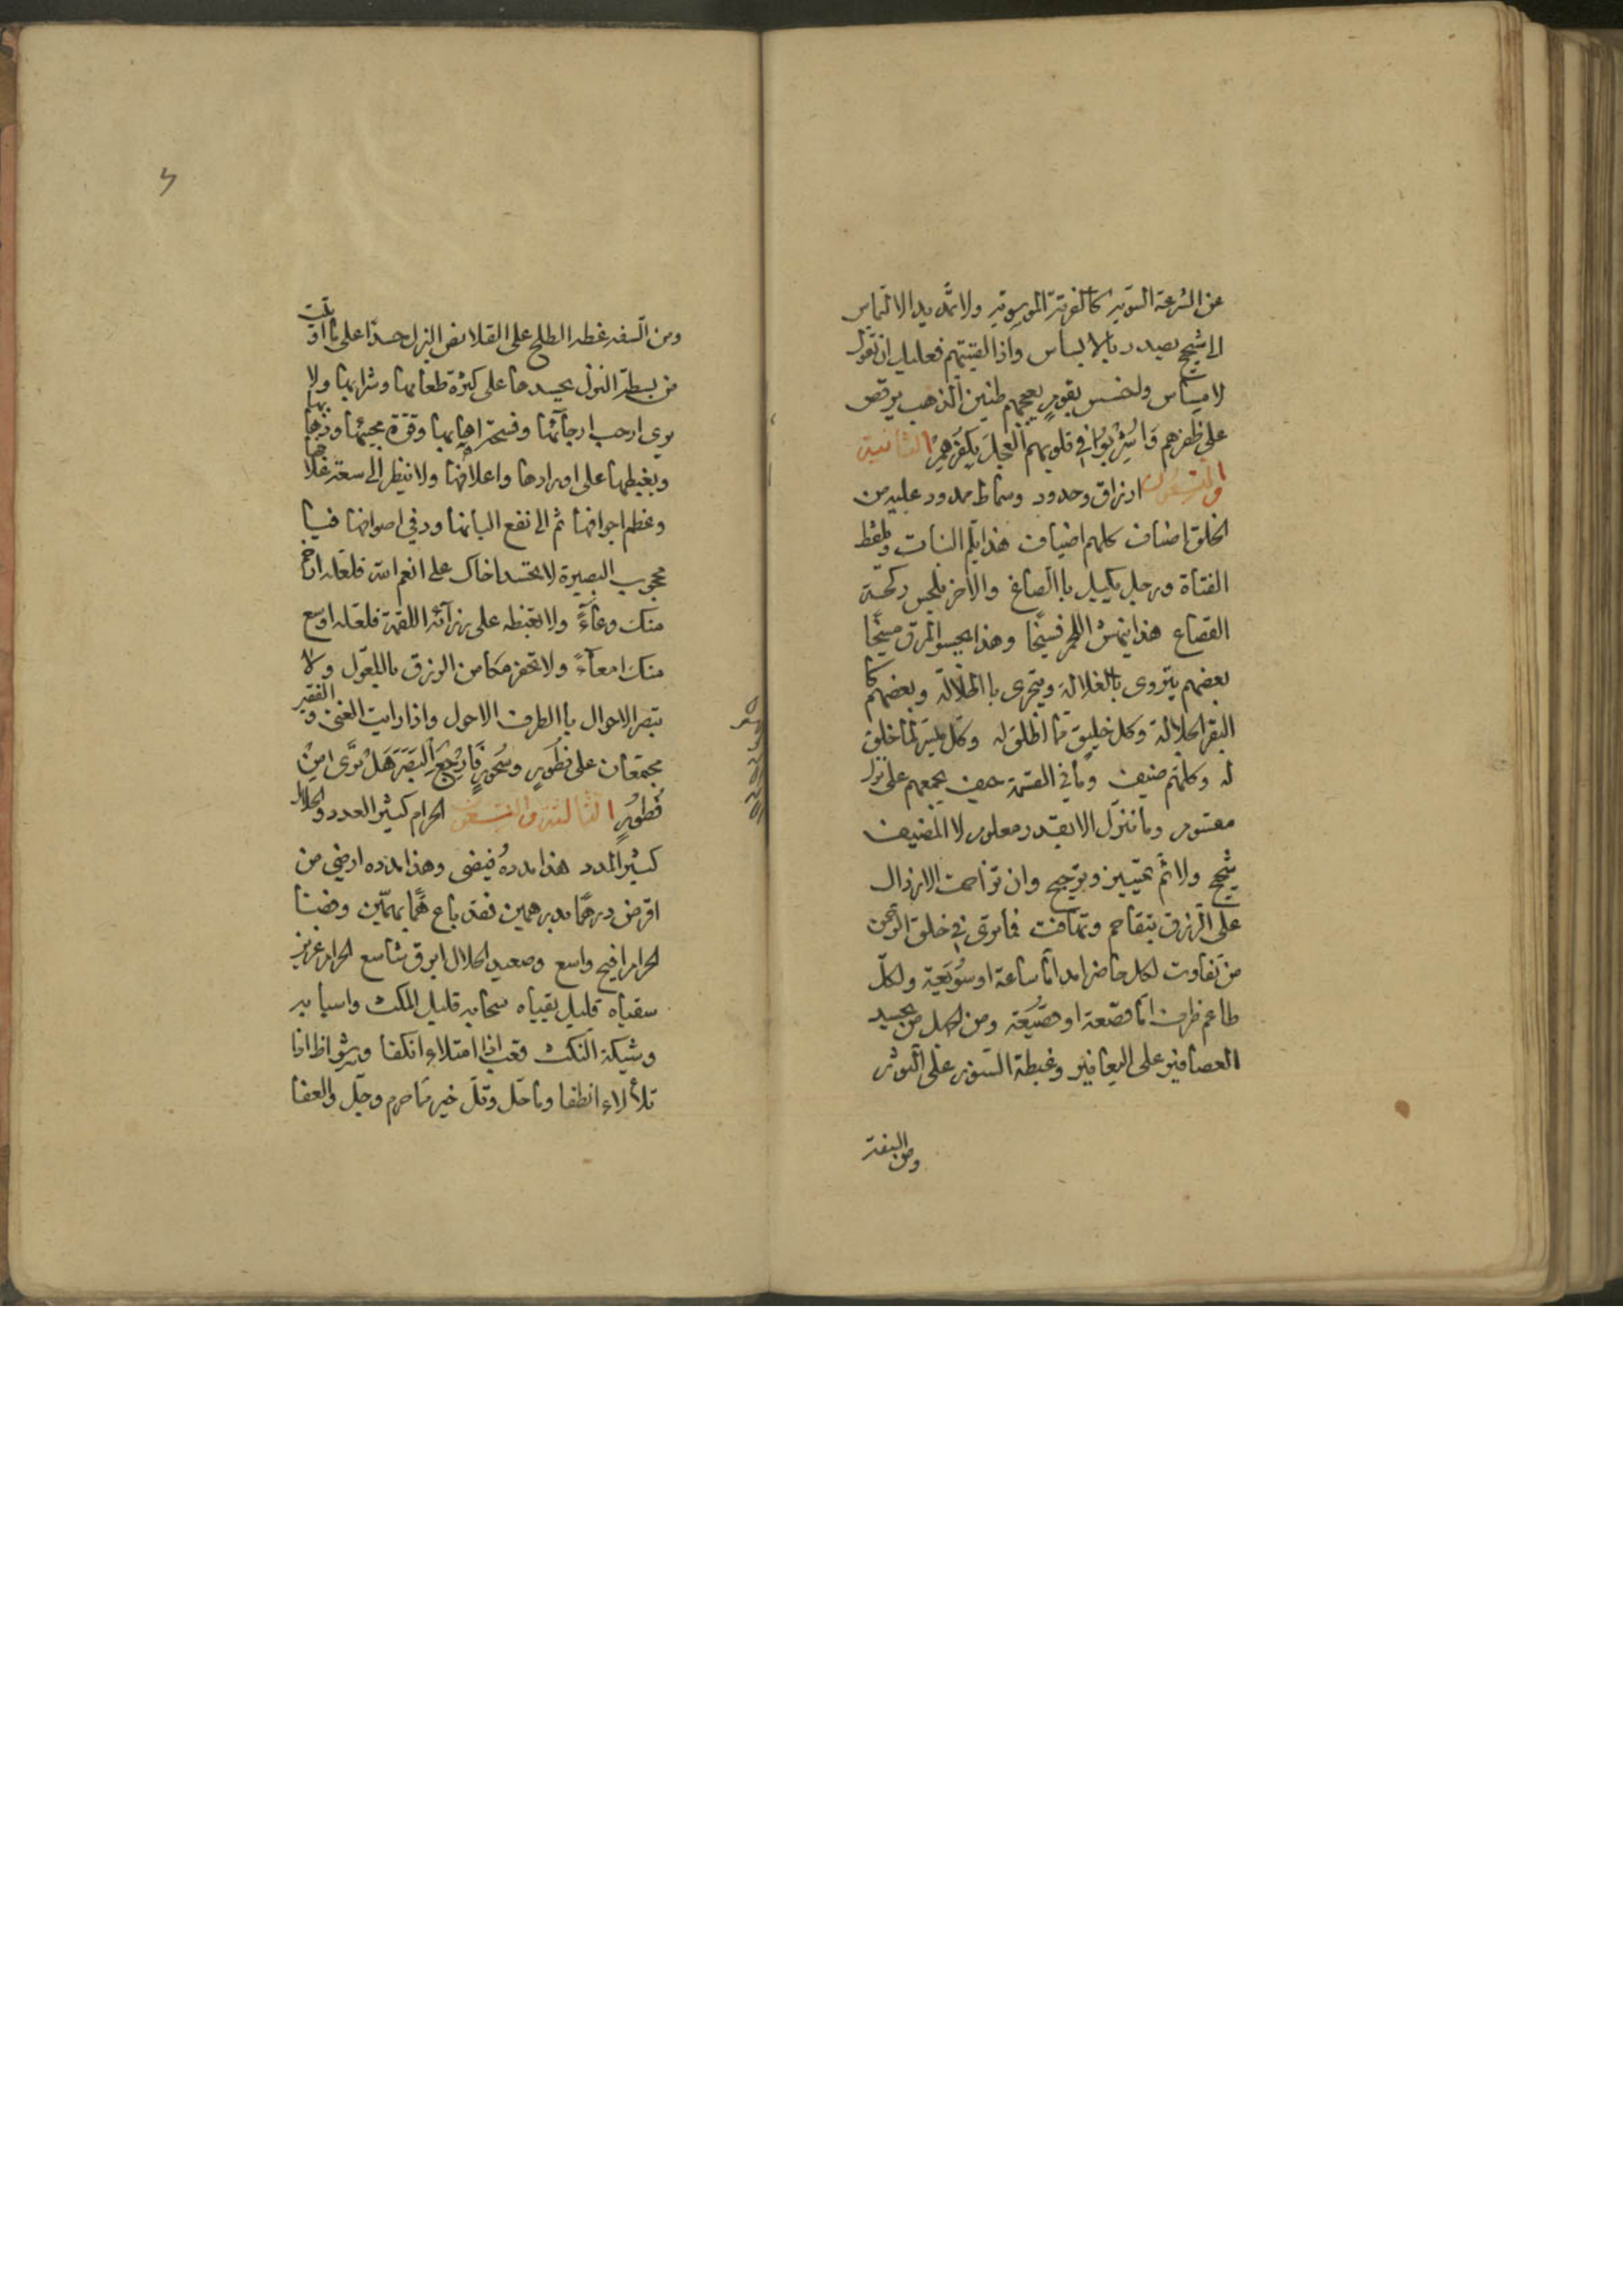 عن الشرعة السوية كالفرقة الموسوية ولا تمد يد الالتماس
الى شحيح يصدر بالابساس واذا لقيتهم فعليك ان تقول
لا مساس واخسس بقوم يعجبهم طنين الذهب يرقص
على ظفرهم وَاُشْرِبُوا في قلوبهم العجل بكفرهم الثانية
والتسعون ارزاق وحدود وسماط ممدود عليه من
الخلق اصناف كلهم اضياف هذا يلم النبات ويلقط
الفتاة ورجل يكيل باالصاع والاخر يلحس
القصاع هذا ينهش اللحم فسيخا وهذا يحسو المرق مسيخا
بعضهم يتروى بالغلالة ويتجزى باالخلالة وبعضهم كا
البقر الجلالة وكل خليق بما اطلق له وكل ميسر لما خلق
له وكلهم ضيف وما في القسمة حيف يجمعهم على نزل
مقسوم وما ننزل الا بقدر معلوم لا المضيف
شحيح ولا ثم تمييز وترجيح وان تزاحمت الارذال
على الرزق بتقاحم وتهافت فما ترى في خلق الرحمن
من تفاوت لكل حاضر امد اما ساعة او سويعة ولكل
طاعم ظرف اما قصعة او قصيعة ومن الجهل من يحسد
العصافير على اليعافير وغبطة السنور على الثور
ومن السفه
ومن السفه غبطه الطلح على القلائص البزل حسدا على ما اوتيت
من بسطة النزل يحسدها على كثرة طعامها وشرابها ولا
يرى ارحب ارجائها وفسحة اهابها وقوة مجيئها وذهابها
ويغبطها على اورادها واعلافها ولا ينظر الى سعة غلافها
وعظم اجوافها ثم الى نفع البانها ودفئ اصوافها فيا
محجوب البصيرة لا تحسد اخاك على انعم الله فلعله ارجح
منك وعاءً ولا تغبطه على رزآئه اللقمة فلعله اوسع
منك امعآءً ولا تحفر مكامن الرزق باالمعول ولا
تبصر الاحوال باالطرف الاحول واذا رايت الغنى والفقير
مجتمعان على فطور وسحور فَارْجِعِ البَصَرَ هَلْ تَرَى مِنْ
فُطُورٍ الثالثة والتسعون الحرام كثير العدد والحلال
كثير المدد هذا مدده فيضى وهذا مدده ارضي من
اقرض درهما بدرهمين فقد باع همّا بهمّين وفضا
الحرام افيح واسع وصعيد الحلال ابرق شاسع الحرام غزير
سقياه قليل بقياه سحابه قليل المكث واسبابه
وشيكة النكث قعب اذا امتلاء انكفا وشواظ اذا
تلألاء انطفا وما حل وقل خير مما حرم وجل والعفا